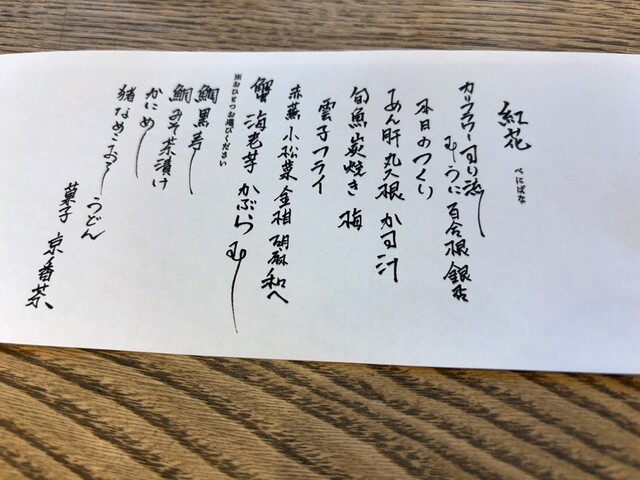 紅花
べにばな
カリフラワーすり流し
むしうに 百合根 銀杏
本日のつくり
あん肝 丸大根 かす汁
旬魚炭焼き 梅
雲子フライ
赤蕪 小松菜 金柑 胡麻和へ
蟹 海老芋 かぶらむし
※おひとつお選びください
鯛黒寿し
鯛みそ茶漬け
かにめし
猪なめこおろしうどん
菓子 京番茶